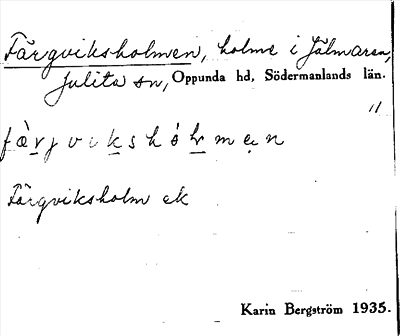 Färgviksholmen, holme i Hjälmaren,
Julita sn, Oppunda hd, Södermanlands län.
Färgviksholm ek
Karin Bergström 1935.